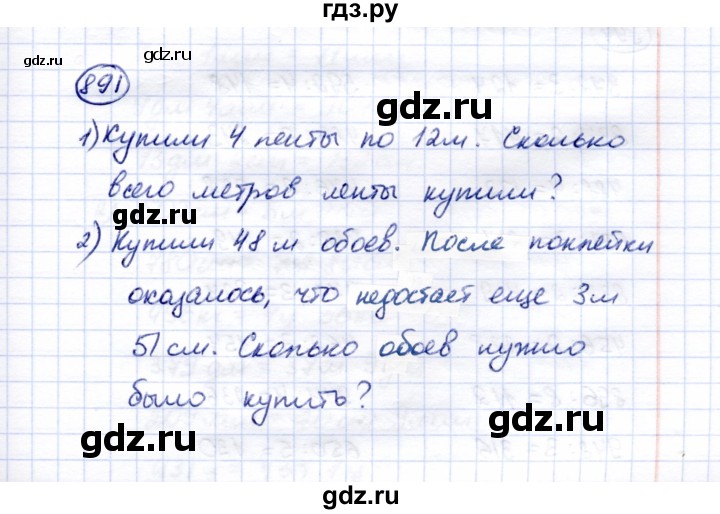 гдз.ру
gdz.ru
gdz.ru
891
gdz.ru
1) Купили 4 ленты по 12м. Сколько
всего метров ленты купили?
gdz.ru
2) Купили 48 м обоев. После поклейки
оказалось, что недостает еще 3м
51 см. Сколько обоев нужно
было купить?
gdz.ru
gdz.ru
gdz.ru